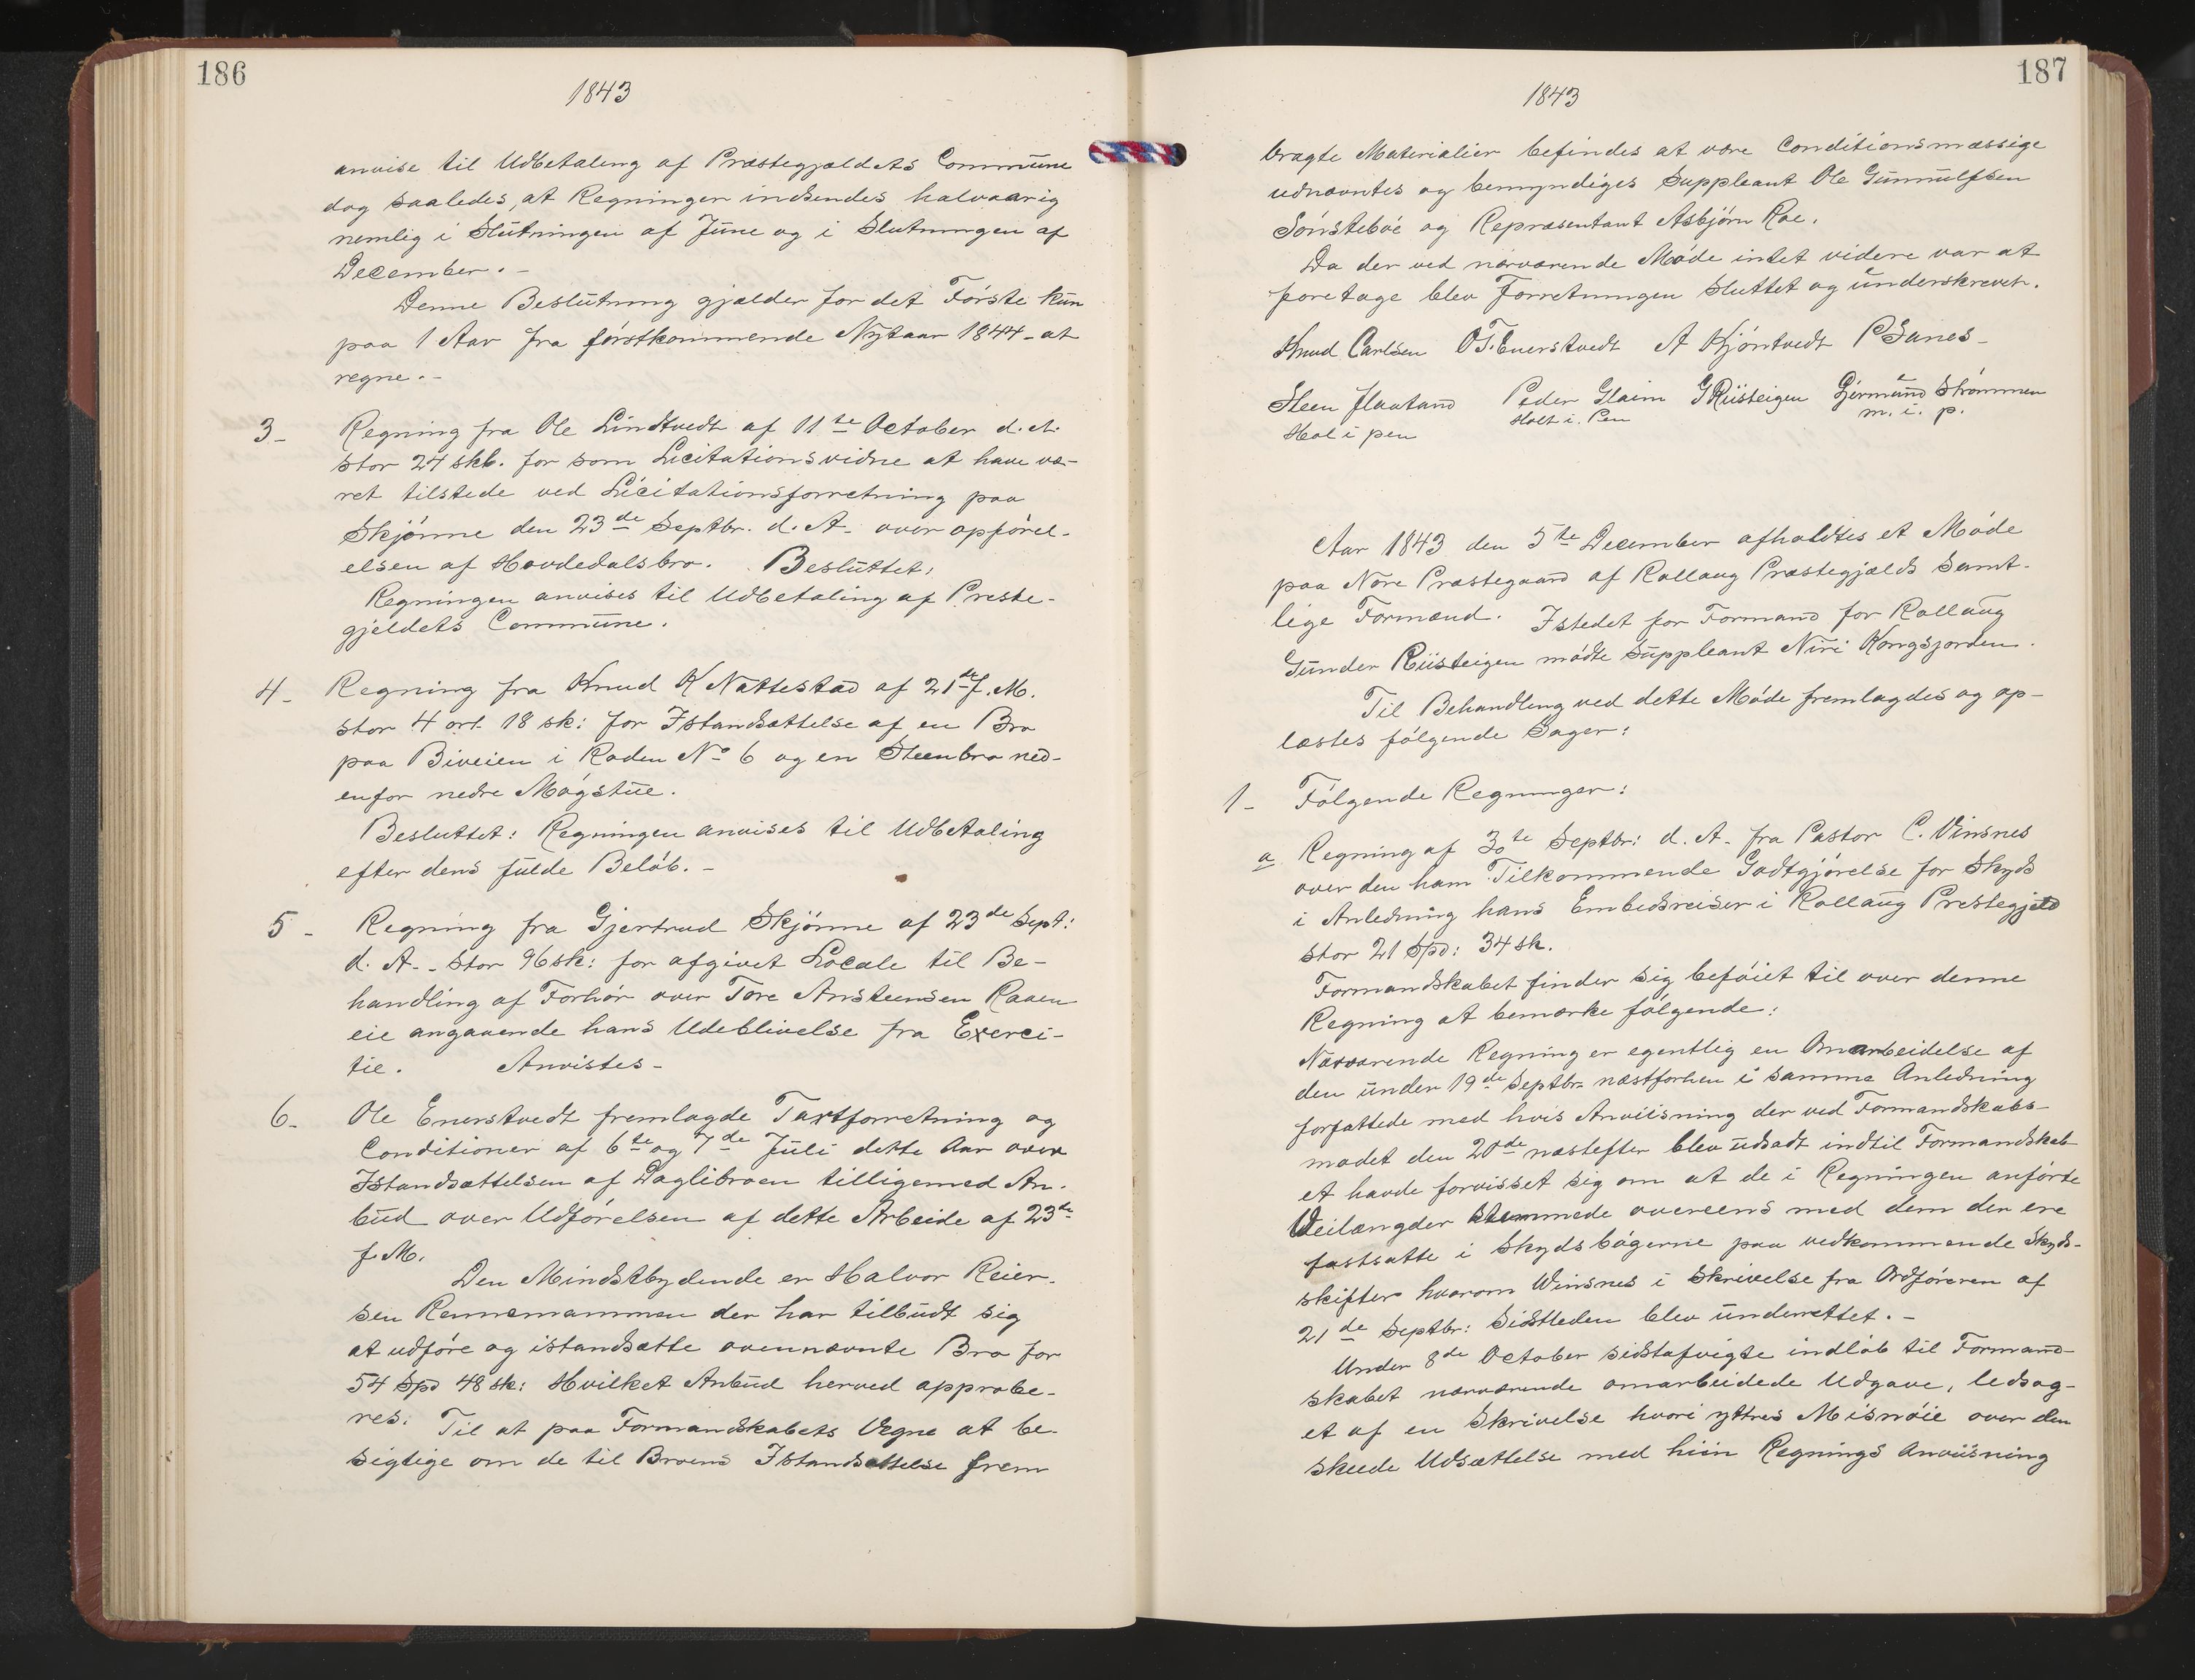 186
1843
anvise til Udbetaling af Præstegjældets Commune
dog saaledes, at Regningen indsendes halvaarig
nemlig i Slutningen af June og i Slutningen af
December. -
Denne Beslutning gjælder for det Første kun
paa 1 Aar fra førstkommende Nytaar 1844 - at
regne. -
3- Regning fra Ole Lindtvedt af 11te October d. A.
stor 24 skb. for som Licitationsvidne at have væ-
ret tilstede ved Licitationsforretning paa
Skjønne den 23de Septbr. d. A. over opførel-
elsen af Hovdedalsbro. Besluttet:
Regningen anvises til Udbetaling af Preste-
gjeldets Commune.
4- Regning fra Knud K Nattestad af 21de f. M.
stor 4 ort. 18 sk: for Istandsættelse af en Bro
paa Biveien i Roden No 6 og en Steenbro ned-
enfor nedre Møgstue.
Besluttet: Regningen anvises til Udbetaling
efter dens fulde Beløb. -
5- Regning fra Gjertrud Skjønne af 23de Sept:
d. A. - stor 96 sk: for afgivet Locale til Be-
handling af Forhør over Tore Ansteensen Raaen
eie angaaende hans Udeblivelse fra Exerci-
tie. Anvistes -
6- Ole Enerstvedt fremlagde Taxtforretning og
Conditioner af 6te og 7de Juli dette Aar over
Istandsættelsen af Daglibroen tilligemed An-
bud over Udførelsen af dette Arbeide af 23de
f. M.
Den Mindstbydende er Halvor Reier-
sen Rennemammen der har tilbudt sig
at udføre og istandsætte ovennævnte Bro for
54 Spd 48 sk: Hvilket Anbud herved approbe-
res: Til at paa Formandskabets Vegne at be-
sigtige om de til Broens Istandsættelse frem
187
1843
bragte Materialier befindes at være Conditionsmæssige
udnævntes og bemyndiges Suppleant Ole Gunnulfsen
Sønstebøe og Repræsentant Asbjørn Roe.
Da der ved nærværende Møde intet videre var at
foretage blev Forretningen sluttet og underskreven.
Knud Carlsen OT. Enerstvedt A Kjøntvedt PBanes-
Steen Flaatand Peder Glaim GRiisteigen Gjermund Strømmen
Hol i pen Holt i. Pen m. i. p.
Aar 1843 den 5te December afholdtes et Møde
paa Nore Præstegaard af Rollaug Præstegjælds Samt-
lige Formænd. Istedet for Formand for Rollaug
Gunder Riisteigen mødte Suppleant Niri Kongsjorden.
Til Behandling ved dette Møde fremlagdes og op-
læstes følgende Sager:
1- Følgende Regninger:
a Regning af 30te Septbr: d. A. fra Pastor C. Vinsnes
over den ham Tilkommende Godtgjørelse for Skyds
i Anledning hans Embedsreiser i Rollaug Prestegjeld
stor 21 Spd: 34 sk.
Formandskabet finder sig beføiet til over denne
Regning at bemærke følgende:
Nærværende Regning er egentlig en Omarbeidelse af
den under 19de Septbr næstforhen i samme Anledning
forfattede med hvis Anviisning der ved Formandskabs-
mødet den 20de næstefter blev udsadt indtil Formandskab
et havde forvisset sig om at de i Regningen anførte
Veilængder stemmede overeens med dem der ere
fastsatte i Skydsbøgerne paa vedkommende Skyds-
skifter hvorom Winsnes i Skrivelse fra Ordføreren af
21de Septbr: Sidstleden blev underrettet. -
Under 8de October sidstafvigte indløb til Formand-
skabet nærværende omarbeidede Udgave, ledsag-
et af en Skrivelse hvori yttres Misnøie over den
skeede Udsættelse med hiin Regnings Anviisning